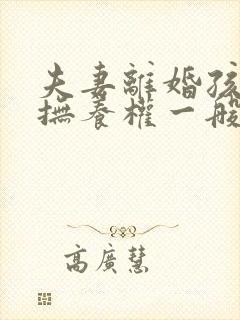 夫妻離婚孩
撫養權一般
高廣慧